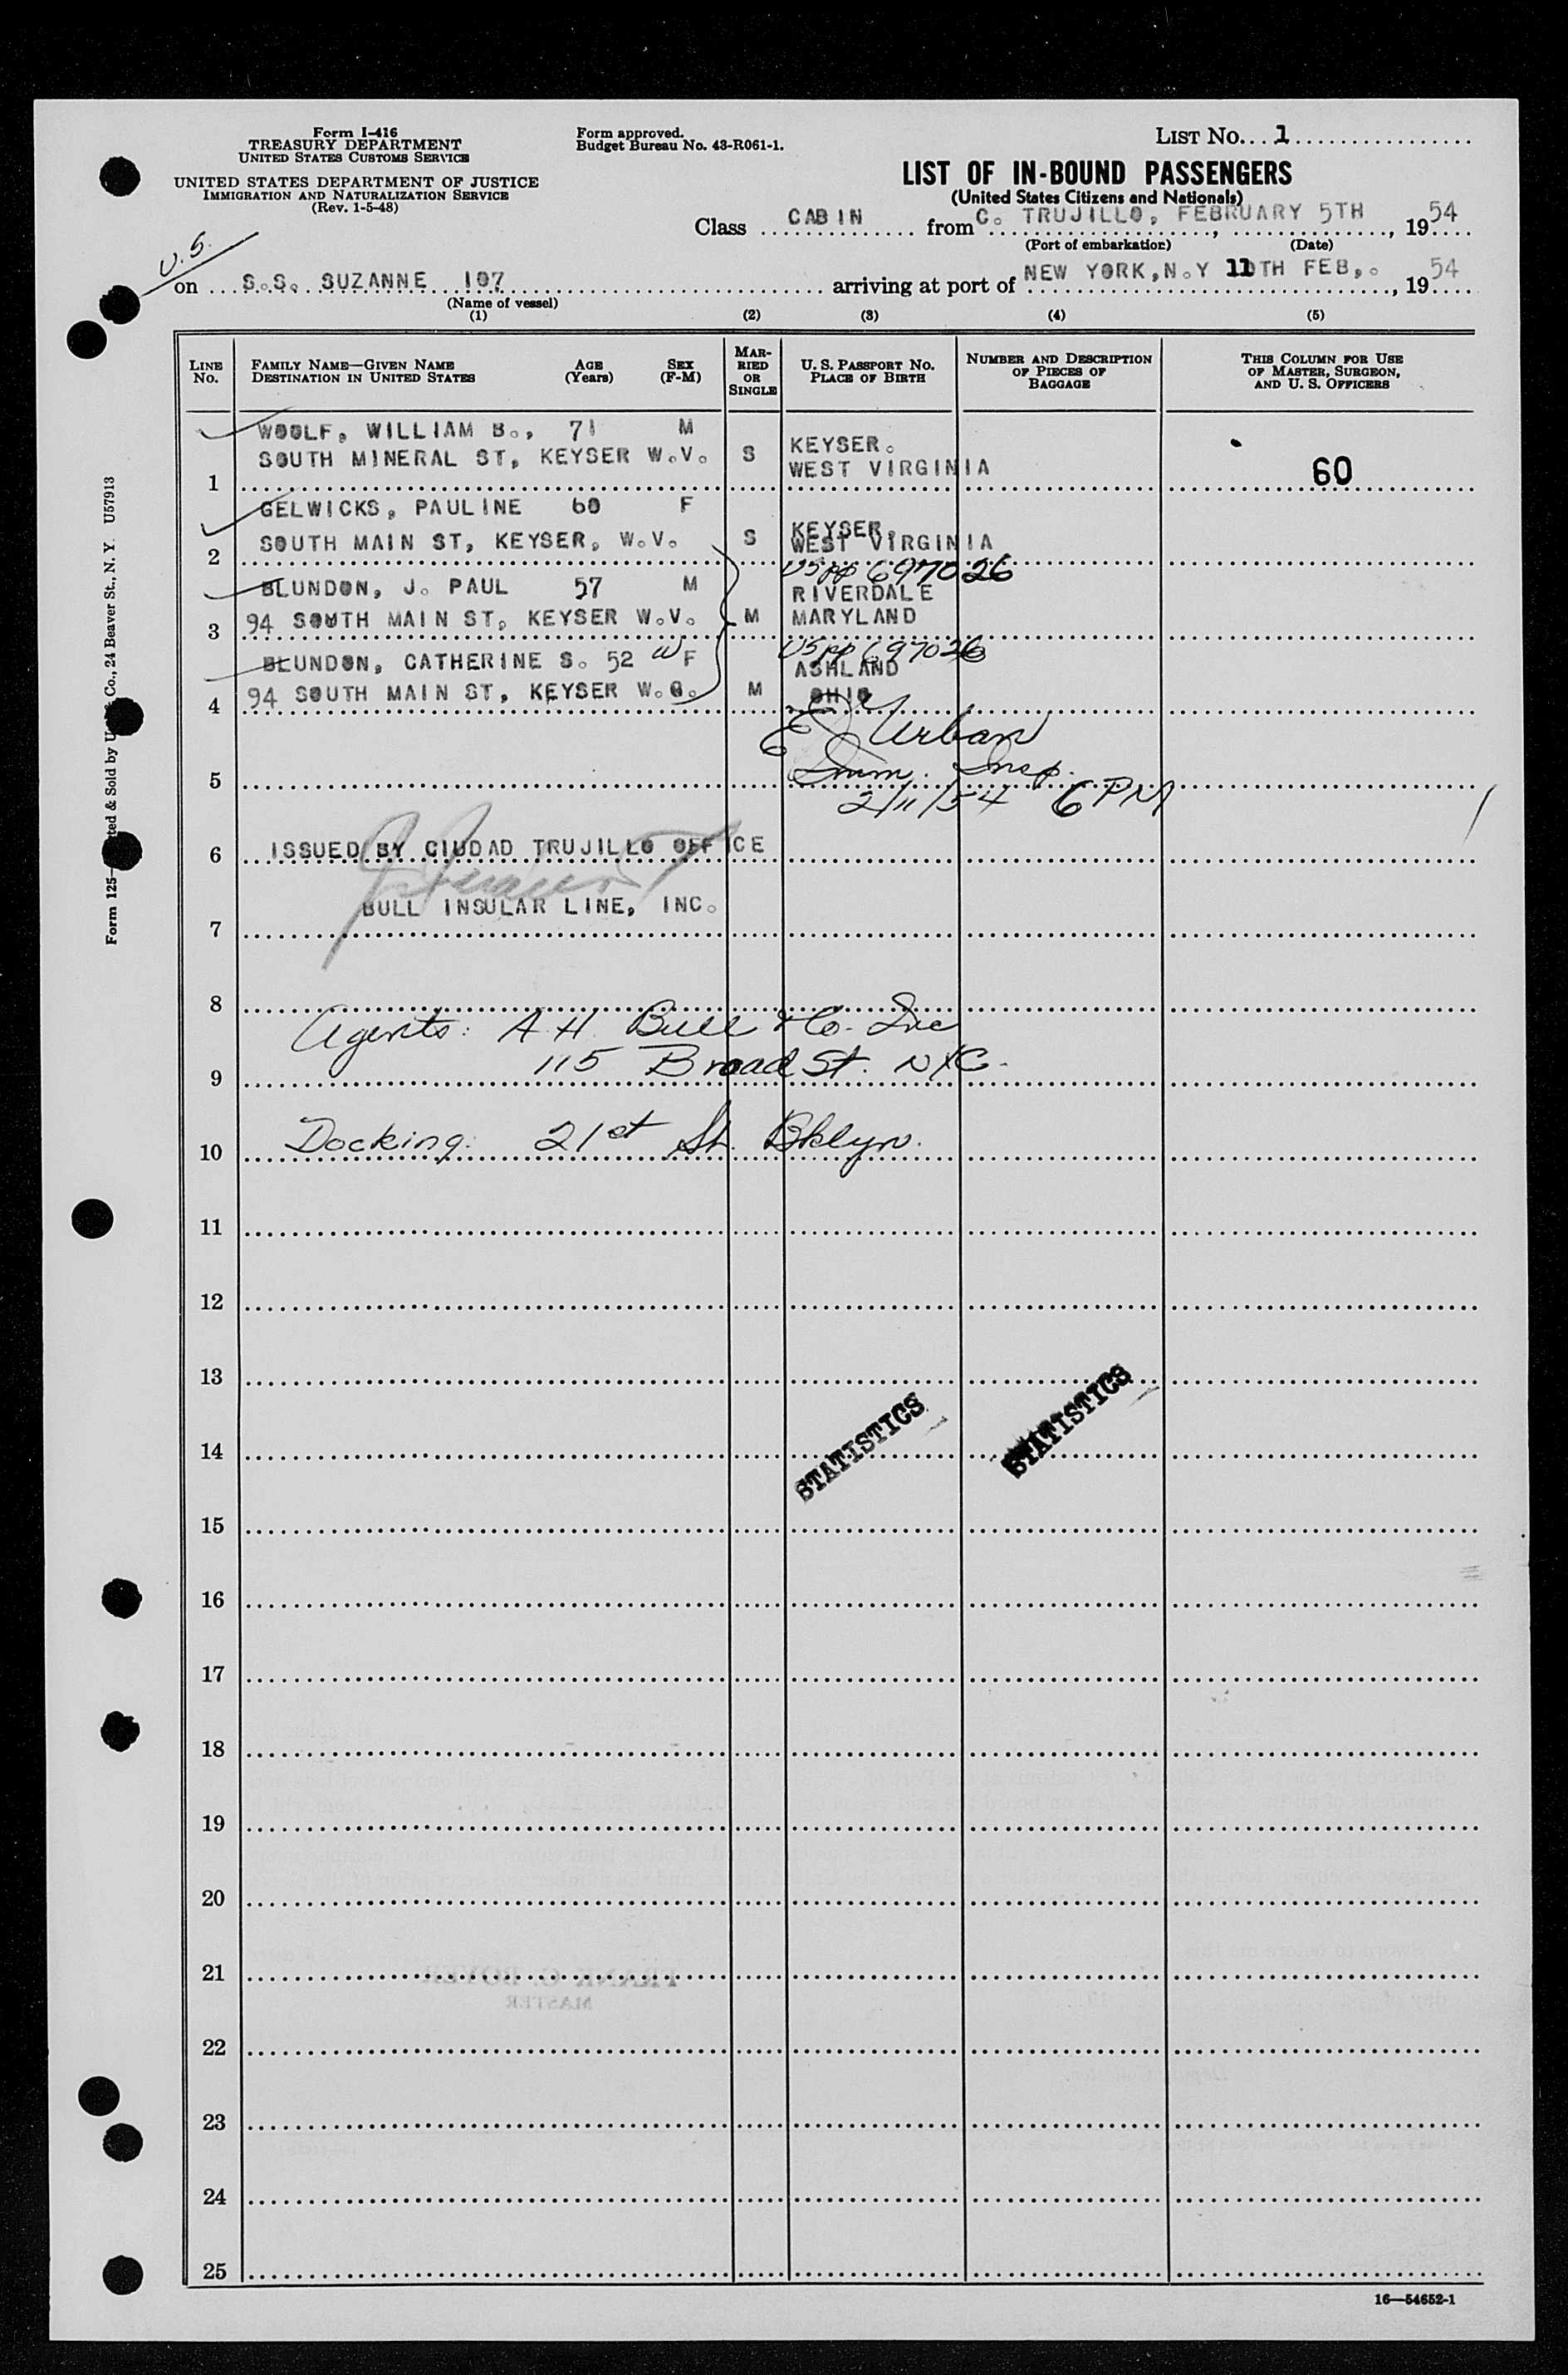 Form I-416
TREASURY DEPARTMENT
UNITED STATES CUSTOMS SERVICE
UNITED STATES DEPARTMENT OF JUSTICE
IMMIGRATION AND NATURALIZATION SERVICE
(Rev. 1-5-48)
Form approved.
Budget Bureau No. 43-R061-1.
LIST No. 1
LIST OF IN-BOUND PASSENGERS
(United States Citizens and Nationals)
Class CABIN from C. TRUJILLO, FEBRUARY 5TH, 1954
(Port of embarkation) (Date)
U.S.
on S.S. SUZANNE 107 arriving at port of NEW YORK, N.Y 11TH FEB,. , 1954
(Name of vessel)
(1) (2) (3) (4) (5)
LINE No.
FAMILY NAME—GIVEN NAME AGE (Years) SEX (F-M)
DESTINATION IN UNITED STATES
MARRIED OR SINGLE
U. S. PASSPORT No.
PLACE OF BIRTH
NUMBER AND DESCRIPTION
OF PIECES OF
BAGGAGE
THIS COLUMN FOR USE
OF MASTER, SURGEON,
AND U. S. OFFICERS
WOOLF, WILLIAM B., 71 M
1 SOUTH MINERAL ST, KEYSER W.V. S KEYSER. WEST VIRGINIA 60
GELWICKS, PAULINE 60 F
2 SOUTH MAIN ST, KEYSER, W.V. S KEYSER, WEST VIRGINIA
USpp 697026
BLUNDON, J. PAUL 57 M RIVERDALE
3 94 SOUTH MAIN ST, KEYSER W.V. M MARYLAND
USpp 697026
BLUNDON, CATHERINE S. 52 W F ASHLAND
4 94 SOUTH MAIN ST, KEYSER W. M OHIO
E Urban
5 Imm. Insp.
2/11/54 6 PM
6 ISSUED BY CIUDAD TRUJILLO OFFICE
BULL INSULAR LINE, INC.
7
8
Agents: A.H. Bull & Co. Inc
115 Broad St. NYC.
9
10 Docking: 21st St. Bklyn.
11
12
13
STATISTICS STATISTICS
14
15
16
17
18
19
20
21
FRANK C. BOYER
MASTER
22
23
24
25
16—54652-1
Form 125—
Co., 24 Beaver St., N. Y. U57913